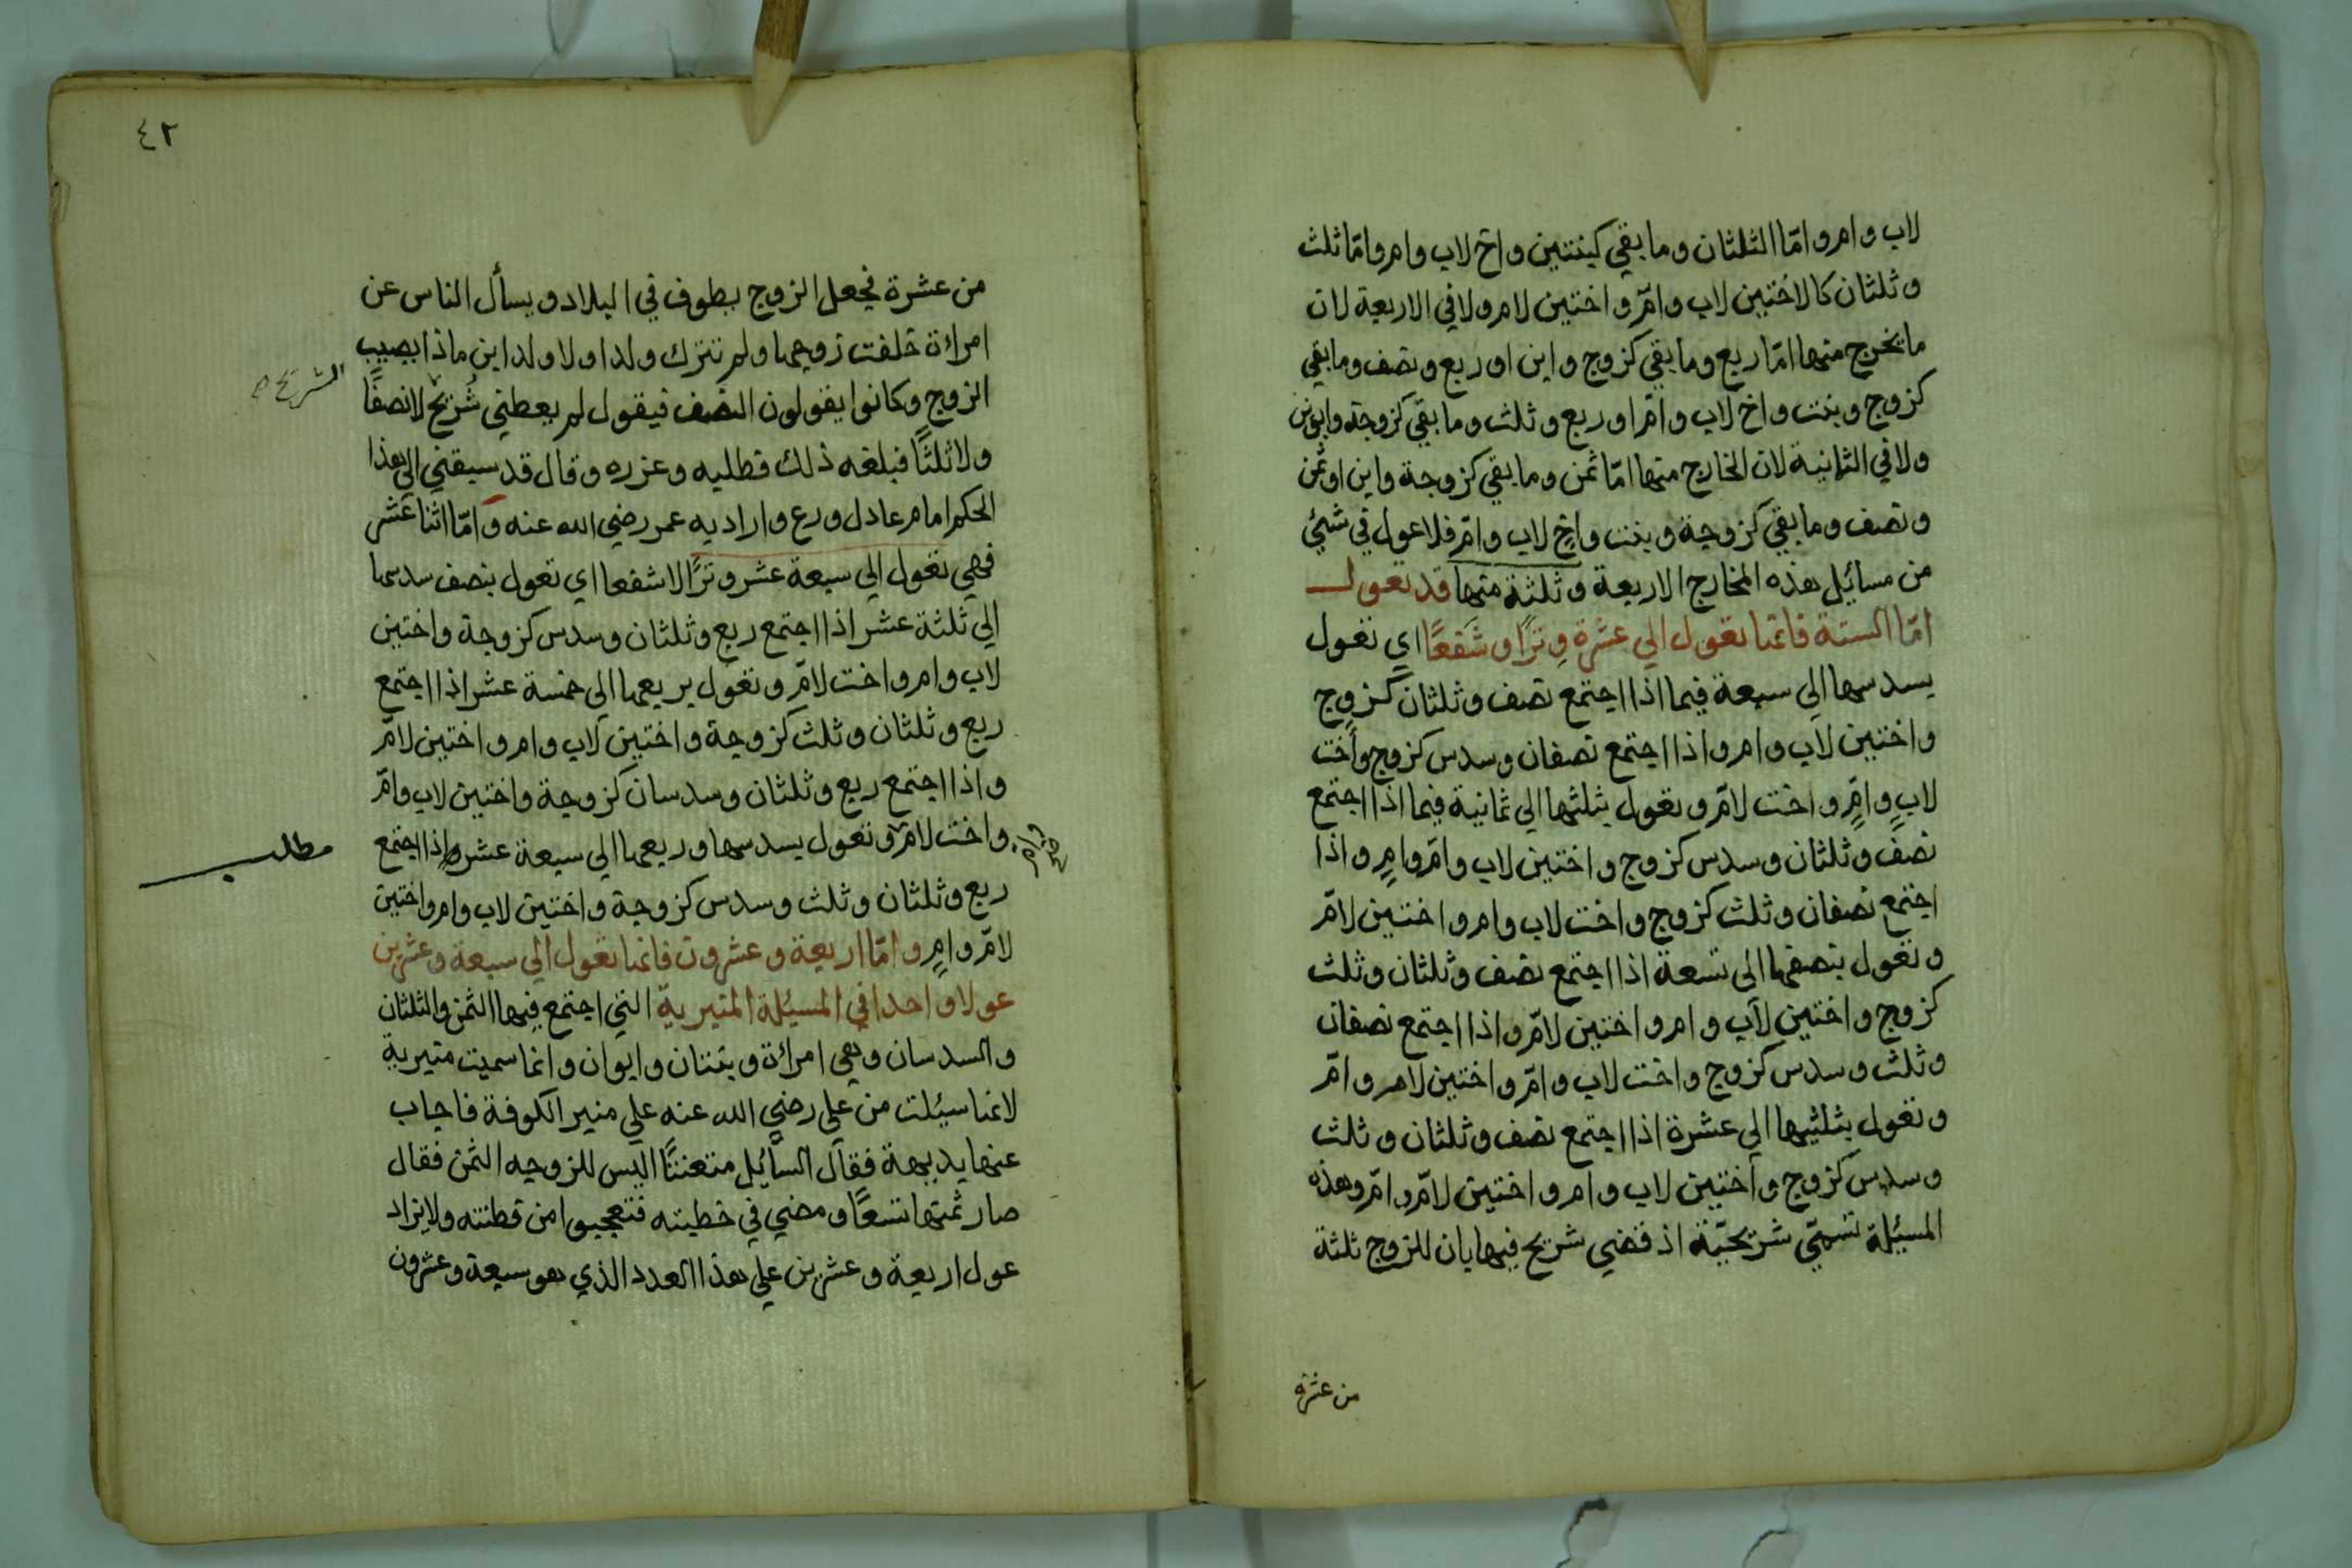 لاب وام واما الثلثان وما بقي كبنتين واخ لاب وام واما ثلث
وثلثان كالاختين لاب وامّ واختين لام ولا في الاربعة لان
ما يخرج منها امّا ربع وما بقي كزوج وابن او ربع ونصف وما بقي
كزوج وبنت واخ لاب وامّ او ربع وثلث وما بقي كزوجة وابوين
ولا في الثمانية لان الخارج منها امّا ثمن وما بقي كزوجة وابن او ثمن
ونصف وما بقي كزوجة وبنت واخ لاب وامّ فلا عول في شئ
من مسائل هذه المخارج الاربعة وثلثة منها قد تعول
امّا الستة فانها تعول الي عشرة وترًا وشفعًا اي تعول
بسدسها الي سبعة فيما اذا اجتمع نصف وثلثان كزوج
واختين لاب وام واذا اجتمع نصفان وسدس كزوج واخت
لاب وامّ واخت لامّ وتعول بثلثها الي ثمانية فيما اذا اجتمع
نصف وثلثان وسدس كزوج واختين لاب وامّ وامٍ واذا
اجتمع نصفان وثلث كزوج واخت لاب وام واختين لامّ
وتعول بنصفها الى تسعة اذا اجتمع نصف وثلثان وثلث
كزوج واختين لاب وام واختين لامّ واذا اجتمع نصفان
وثلث وسدس كزوج واخت لاب وامّ واختين لام وامّ
وتعول بثلثيها الي عشرة اذا اجتمع نصف وثلثان وثلث
وسدس كزوج واختين لاب وام واختين لامّ وامّ وهذه
المسئلة تسمّي شريحيّة اذ قضي شريح فيها بان للزوج ثلثة
من عشرة
٤٢
من عشرة فجعل الزوج يطوف في البلاد ويسأل الناس عن
امراءة خلفت زوجها ولم تترك ولدا ولا ولد ابن ماذا يصيب
الزوج وكانوا يقولون النصف فيقول لم يعطني شُريح لا نصفًا
ولا ثلثًا فبلغه ذلك فطلبه وعزره وقال قد سبقني الي هذا
الحكم امام عادل ورع واراد به عمر رضي الله عنه وامّا اثنا عشر
فهي تعول الي سبعة عشر وترًا لا شفعا اي تعول بنصف سدسها
الي ثلثة عشر اذا اجتمع ربع وثلثان وسدس كزوجة واختين
لاب وام واخت لامّ وتعول بربعها الي خمسة عشر اذا اجتمع
ربع وثلثان وثلث كزوجة واختين لاب وام واختين لامّ
واذا اجتمع ربع وثلثان وسدسان كزوجة واختين لاب وامّ
واخت لامّ وتعول بسدسها وربعها الي سبعة عشر واذا اجتمع
مطلب
ربع وثلثان وثلث وسدس كزوجة واختين لاب وام واختين
لامّ وامٍ وامّا اربعة وعشرون فانما تعول الي سبعة وعشرين
عولا واحدا في المسئلة المنبرية التي اجتمع فيها الثمن والثلثان
والسدسان وهي امراءة وبنتان وابوان وانما سميت منبرية
لانها سئلت من علي رضي الله عنه علي منبر الكوفة فاجاب
عنها بديهة فقال السائل متعنتًا اليس للزوجه الثمن فقال
صار ثمنها تسعًا ومضي في خطبته فتعجبوا من فطنته ولا يزاد
عول اربعة وعشرين علي هذا العدد الذي هو سبعة وعشرون